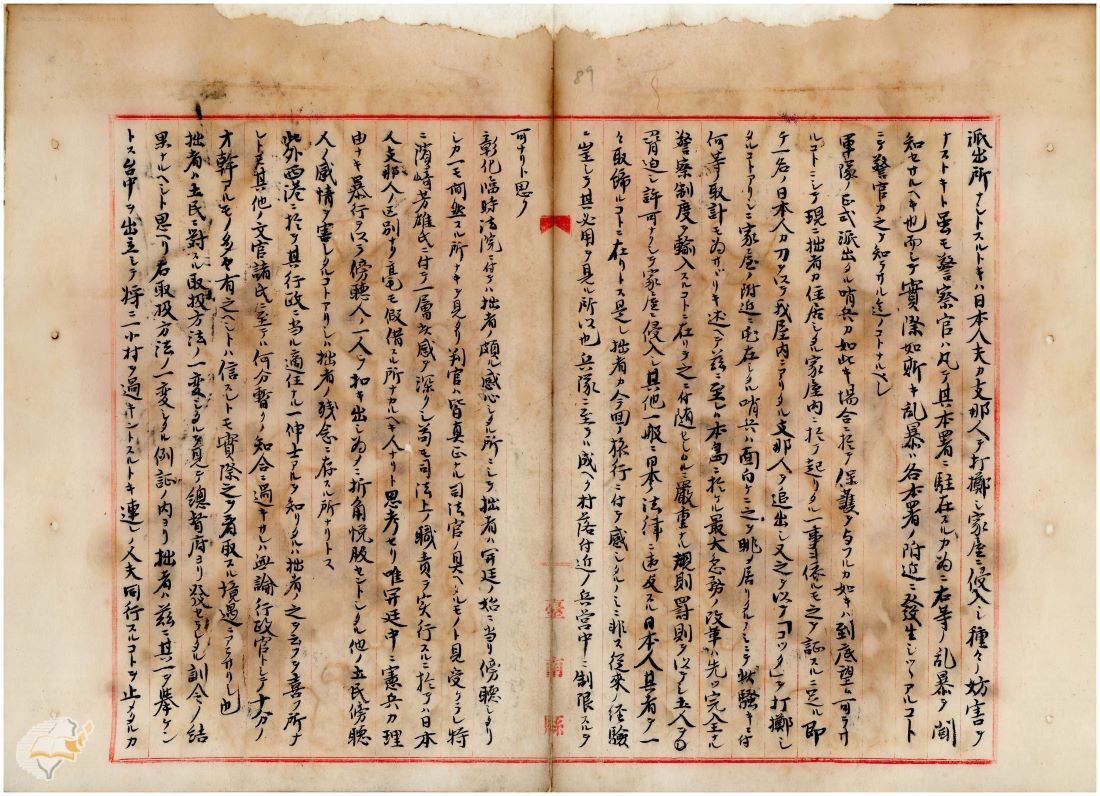 派出所アラントスルトキハ日本人夫カ支那人ヲ打擲シ家屋ニ侵入シ種々ノ妨害ヲ
ナストキト雖モ警察官ハ凡テ其本署ニ駐在スルカ為ニ右等ノ乱暴ヲ聞
知セサルヘキ也而シテ實際如斯キ乱暴ハ各本署ノ附近ニ發生シツヽアルコト
ニテ警官カ之ヲ知ラサル迄ノコトナルヘシ
軍隊ノ正式派出タル哨兵カ如此キ場合ニ於テ保護ヲ与フルカ如キハ到底望ム可ラサ
ルコトニシテ現ニ拙者カ住居シタル家屋内ニ於テ起リタル一事ニ依ルモ之ヲ証スルニ足レリ即
チ一名ノ日本人カ刀ヲ以テ我屋内ニアリタル支那人ヲ追出シ又之ヲ以テ「コック」ヲ打擲シ
タルコトアリシニ家屋ノ附近ニ在シタル哨兵ハ面白ケニ之ヲ眺メ居リタルノミニテ此騒キニ付
何等ノ取計モ為サヾリキ述テ茲ニ至レハ本島ニ於ケル最大急務ノ改革ハ先ツ完全ナル
警察制度ヲ輸入スルコトニ在リ之ニ付随セシムルニ嚴重ナル規則罰則ヲ以テシ土人ヲ
脅迫シ許可ナクシテ家屋ニ侵入シ其他一般ニ日本ノ法律ニ違反スル日本人其者ヲ一
々取締ルコトニ在リトス是レ拙者カ今回ノ旅行ニ付テ感シタルノミニ非ス従来ノ経験
ニ照シテ其必用ヲ見ル所以也兵隊ニ至テハ成ヘク村落付近ノ兵営中ニ制限スルヲ
可ナリト思フ
彰化臨時法院ニ付テハ拙者頗ル感心シタル所ニシテ拙者ハ開廷ノ始ニ当リ傍聴シタリ
シカ一モ間然スル所ナキヲ見タリ判官ハ皆真正ナル司法官ノ具ヘタルモノト見受ケラレ特
ニ濱崎芳雄氏ニ付テ一層此感ヲ深クシ苟モ司法上ノ職責ヲ実行スルニ於テハ日本
人支那人ノ区別ナク毫モ假借スル所ナカルヘキ人ナリト思考セリ唯開廷中ニ憲兵カ理
由ナキ暴行ヲ以テ傍聴人ノ一人ヲ扣キ出シ為メニ折角悦服セントシタル他ノ土民傍聴
人ノ感情ヲ害シタルコトアリシハ拙者ノ残念ニ存スル所ナリトス
此外西港ニ於テ其行政ニ当ル適任ナル一伸士アルヲ知リタルハ拙者ノ之ヲ云フヲ喜フ所ナ
レトモ其他ノ文官諸氏ニ至テハ何分暫クノ知合ニ過キサレハ無論行政官トシテ十分ノ
才幹アルモノ多々有之ヘシトハ信スレトモ實際之ヲ看取スル境遇ニアラサリシ也
拙者ハ土民ニ對スル取扱方法ノ一変シタルヲ見テ總督府ヨリ發セラレタル訓令ノ結
果ナルヘシト思ヘリ右取扱方法ノ一変シタル例証ノ内ヨリ拙者ハ茲ニ其一ヲ擧ケン
トス台中ヲ出立シテ将ニ一小村ヲ過キントスルトキ連レノ人夫同行スルコトヲ止メタルカ
臺南縣
89